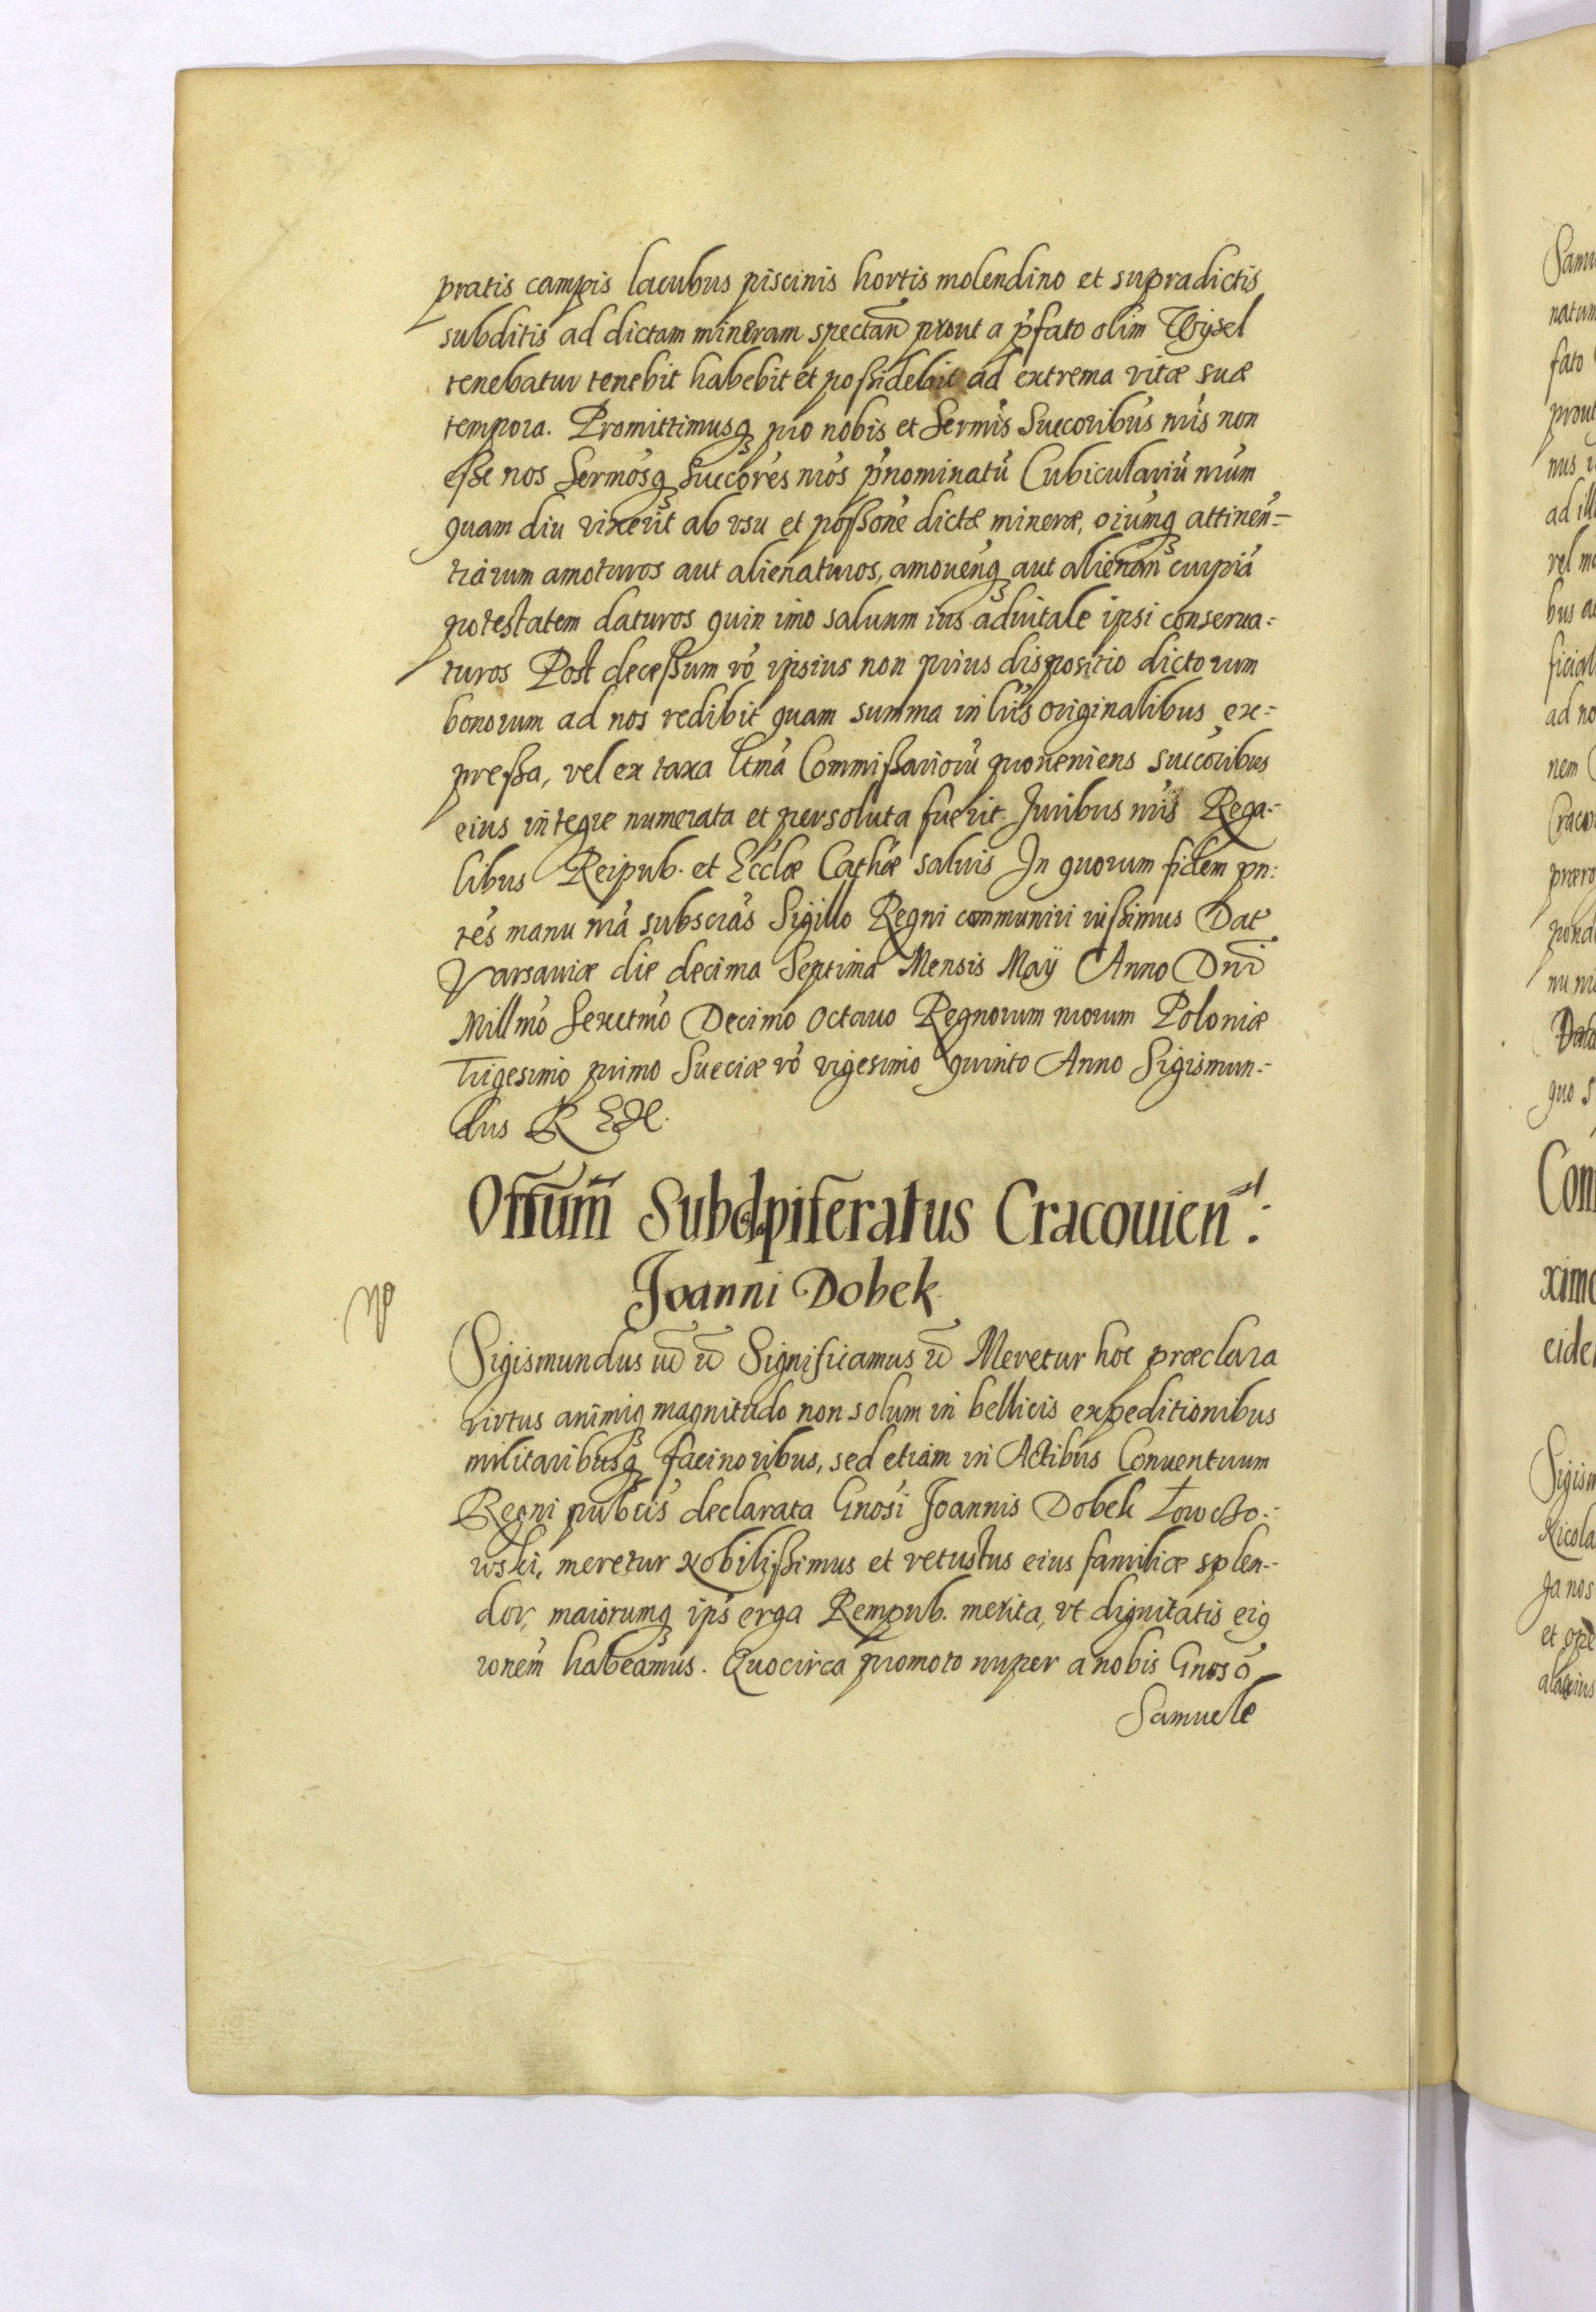 pratis campis lacubus piscinis hortis molendino et supradictis
subditis ad dictam mineram spectan̄ prout a p̓fato olim Wysel
tenebatur tenebit habebit et possidebit ad extrema vitæ suæ
tempora. Promittimusq̨ pro nobis et Sermis Succoribus nris non
esse nos Sermosq̨ Succores nros p̓nominatū Cubiculariū nrum
quam diu vixerit ab usu et possone dictæ mineræ, oiumq̨ attinen=
tiarum amoturos aut alienaturos, amouenq̨ aut alienan cuipiā
potestatem daturos quin imo saluum ius aduitale ipsi conserua=
turos Post decessum vo ipsius non prius dispositio dictorum
bonorum ad nos redibit quam summa in lris originalibus ex=
pressa, vel ex taxa ltma Commissariorū proueniens succoribus
eius integre numerata et persoluta fuerit. Juribus nris Rega=
libus Reipub. et Ecclæ Cathæ saluis In quorum fidem pn:
tes manu nra subscras Sigillo Regni communiri iussimus Dat
Varsauiæ die decima Septima Mensis Maÿ Anno Dni
Millmo Sexctmo Decimo octauo Regnorum nrorum Poloniæ
Trigesimo primo Sueciæ vo vigesimo quinto Anno Sigismun=
dus REX.
Offium Subdpiferatus Cracouien:
Joanni Dobek
Sigismundus &c Significamus &c Meretur hoc præclara
virtus animiq̨ magnitudo non solum in bellicis expeditionibus
militaribusq̨ facinoribus, sed etiam in Actibus Conuentuum
Regni publcis declarata Gnosi Joannis Dobek Łowczo=
wski, meretur Nobilissimus et vetustus eius familiæ splen=
dor, maiorumq̨ ips erga Rempub. merita, vt dignitatis eiq̨
ronem habeamus. Quocirca promoto nuper a nobis Gnoso
Samuele